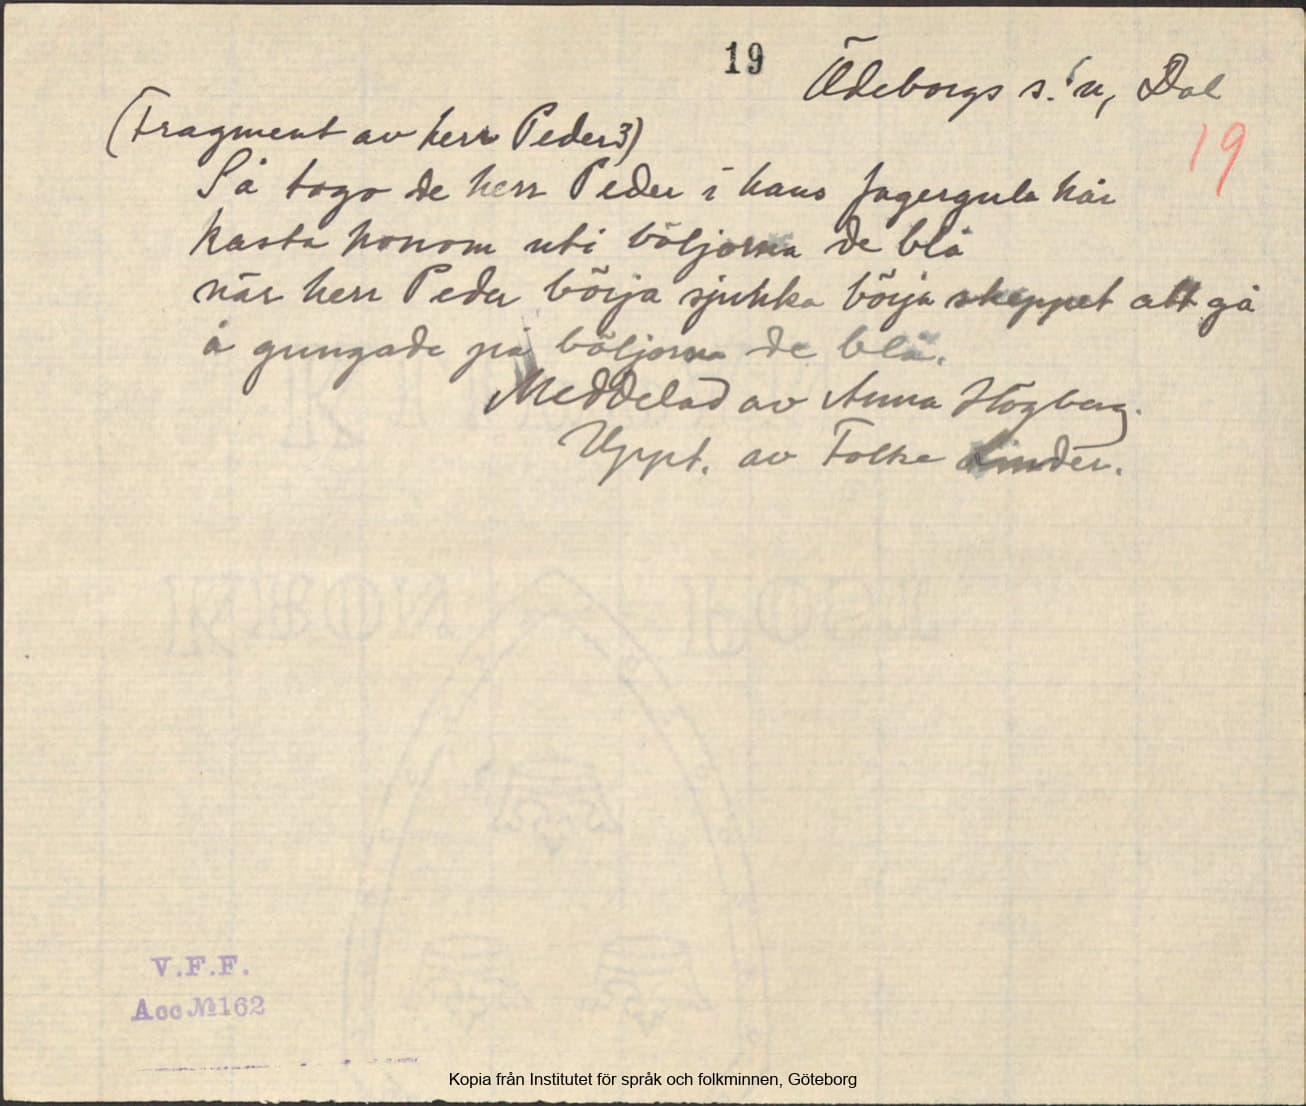 19
Ödeborgs s:n, Dal
19
(Fragment av herr Peder3)
Så togo de herr Peder i hans fagergula hår
kasta honom uti böljorna de blå
när herr Peder börja sjunka börja skeppet att gå
å gungade på böljorna de blå.
Meddelad av Anna Högberg.
Uppt. av Folke Linder.
KRON POST
V.F.F.
Acc №162
Kopia från Institutet för språk och folkminnen, Göteborg